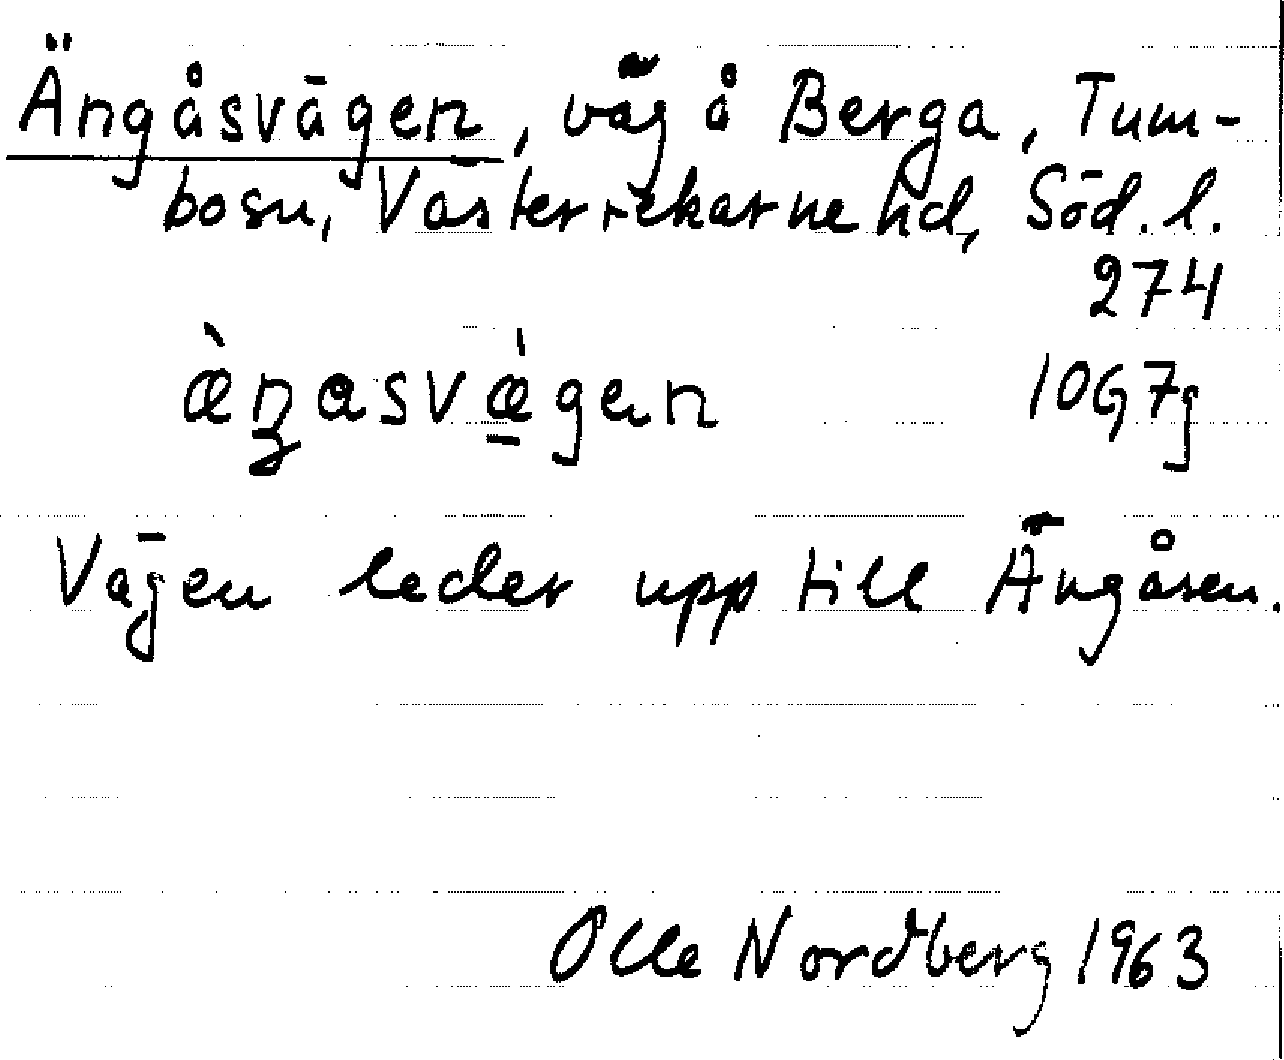 Ängåsvägen, väg å Berga, Tum-
bosn, Västerrekarne hd, Söd. l.
274
æ̀ŋasvǽgen 10G7g
Vägen leder upp till Ängåsen.
Olle Nordberg 1963